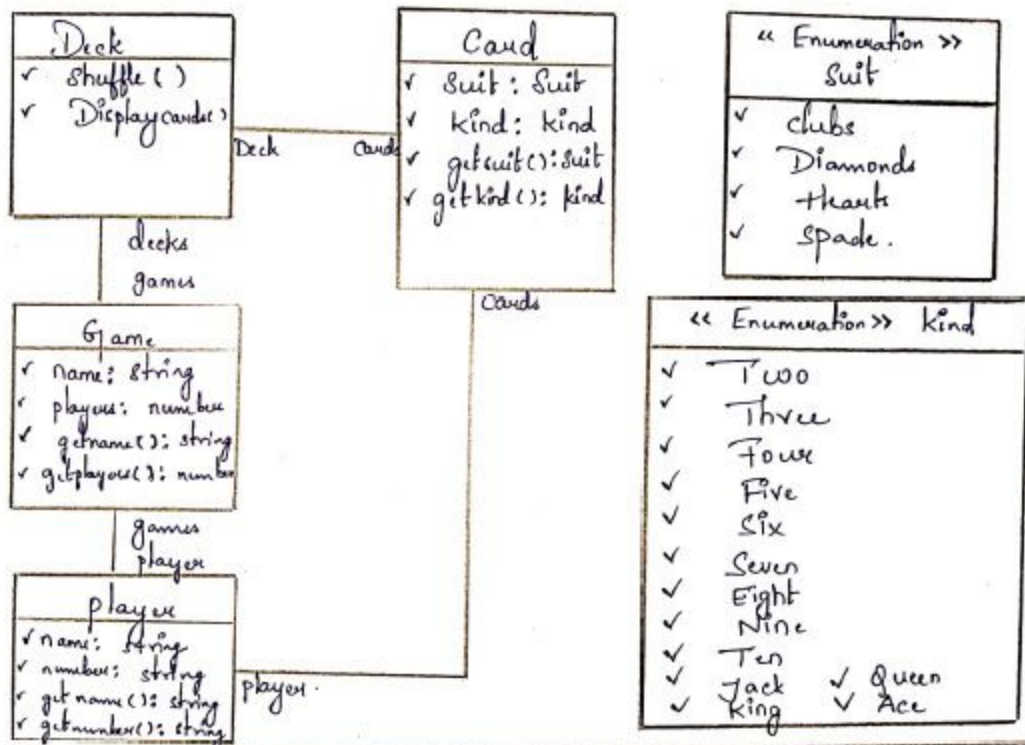 Deck
✓ shuffle ( )
✓ Displaycards()
Deck
Cards
Card
✓ Suit : Suit
✓ kind : kind
✓ getsuit() : Suit
✓ getkind() : kind
Cards
« Enumeration »
Suit
✓ clubs
✓ Diamonds
✓ Hearts
✓ Spade.
decks
games
Game
✓ name: string
✓ players: number
✓ getname(): string
✓ getplayers(): number
games
player
player
✓ name: string
✓ number: string
✓ get name(): string
✓ getnumber(): string
player.
« Enumeration » kind
✓ Two
✓ Three
✓ Four
✓ Five
✓ Six
✓ Seven
✓ Eight
✓ Nine
✓ Ten
✓ Jack ✓ Queen
✓ King ✓ Ace